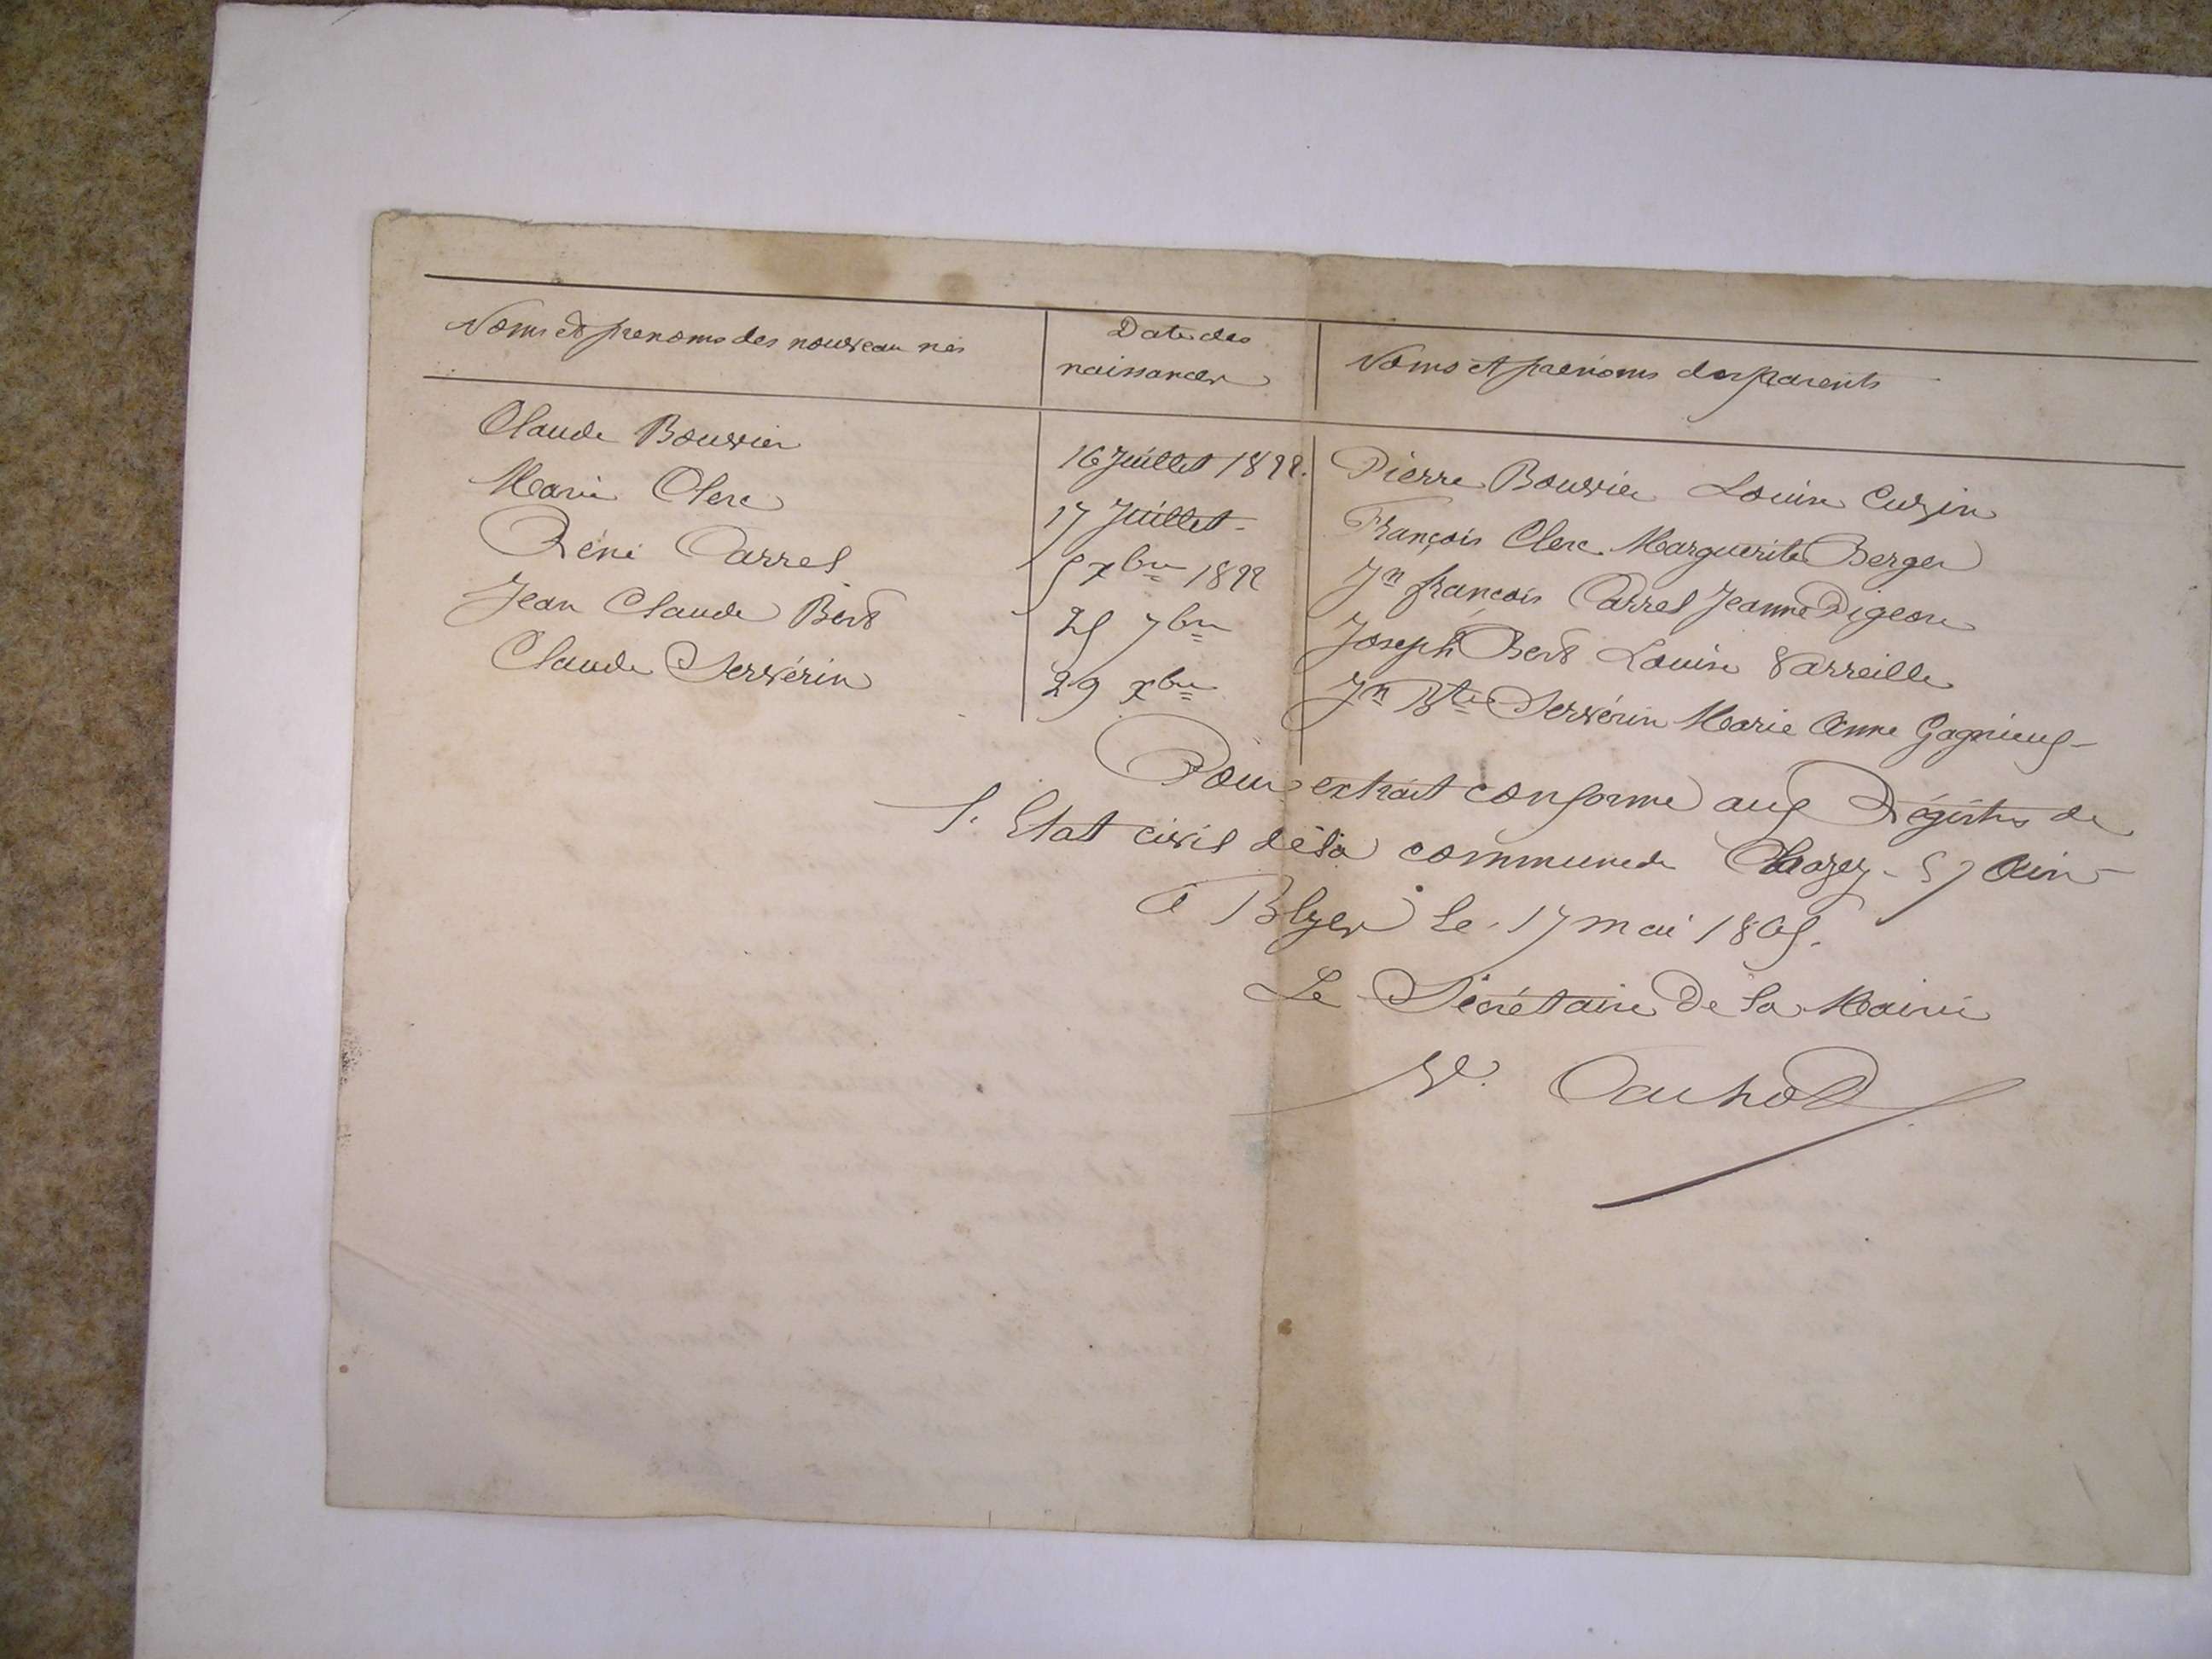 Noms et prenoms des nouveau nés
Date des naissances
Noms et prénoms des parents
Claude Bouvier 16 Juillet 1822. Pierre Bouvier Louise Cuzin
Marie Clerc 17 Juillet. François Clerc Marguerite Berger
Réné Carrel 5 xbre 1822 Jn françois Carrel Jeanne Digeon
Jean Claude Bert 25 7bre Joseph Bert Louise Varreille
Claude Servérin 29 xbre Jn Bte Servérin Marie Anne Gagnieux
Pour extrait conforme aux Régistres de
l. Etat civil de la commune de Chazey - s/ Ain
à Blyes le 17 mai
Le Sécrétaire De la Mairie